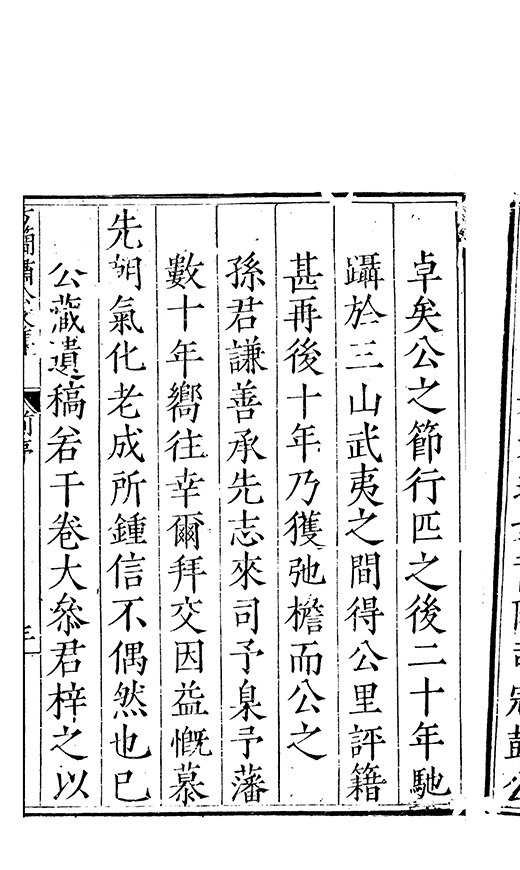 卓矣公之節行匹之後二十年馳
躡於三山武夷之間得公里評籍
甚再後十年乃獲弛檐而公之
孫君謙善承先志來司予臬予藩
數十年嚮往幸爾拜交因益慨慕
先朝氣化老成所鍾信不偶然也已
公藏遺稿若干卷大叅君梓之以
前序
三